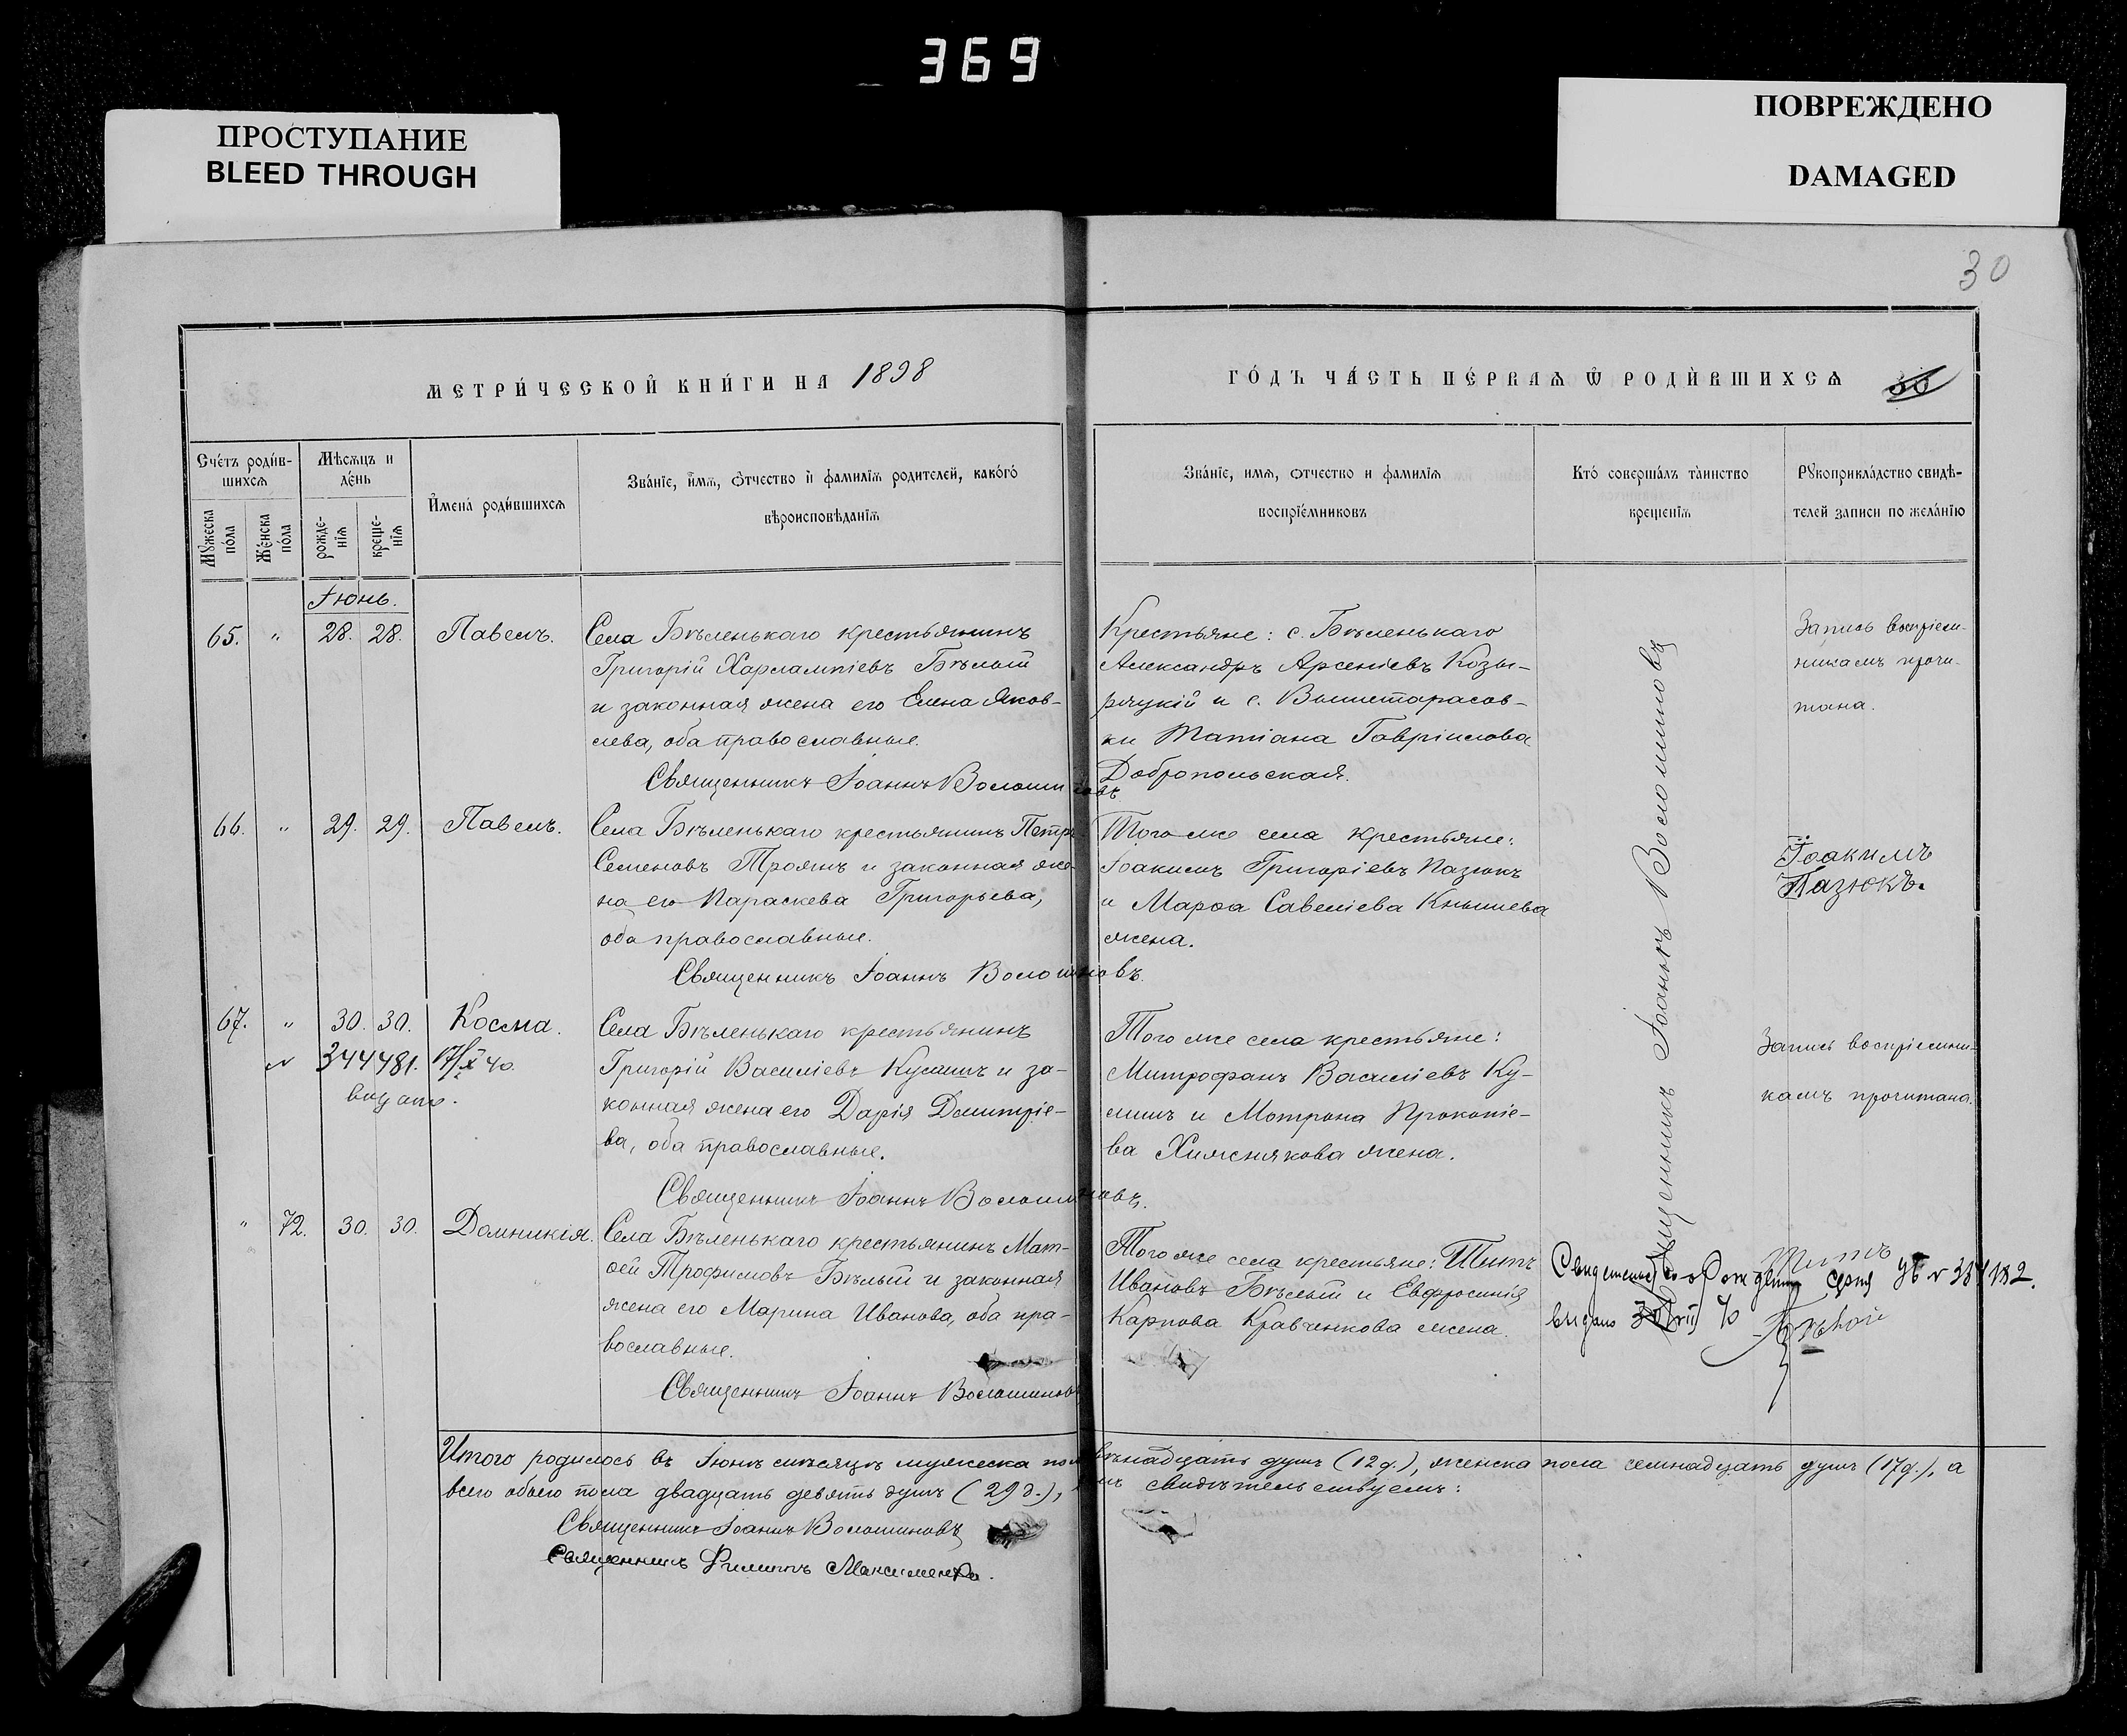 369
ПРОСТУПАНИЕ
BLEED THROUGH
ПОВРЕЖДЕНО
DAMAGED
30
МЕТРИ́ЧЕСКОЙ КНИ́ГИ НА 1898
ГО́ДЪ ЧА́СТЬ ПЕ́РВАѦ Ѿ РОДИ́ВШИХСѦ 30
Сче́тъ роди́в-
шихсѧ
Мѣ́сѧцъ и
де́нь
Мꙋ́жеска
по́ла
Же́нска
по́ла
рожде-
нїѧ
креще-
нїѧ
И҆мена̀ роди́вшихсѧ
Зва́нїе, и҆́мѧ, ѻ҆́тчество и҆ фамилїѧ родителей, како́гѡ
вѣроисповѣ́данїѧ
Зва́нїе, имѧ, ѻтчество и фамилїѧ
воспрїе́мниковъ
Кто́ соверша́лъ та́инство
креще́нїѧ
Рꙋкоприкла́дство свидѣ́-
телей записи по жела́нїю
Іюнь.
65. " 28. 28. Павелъ.
Села Бѣленькаго крестьянинъ
Григорій Харлампіевъ Бѣлый
и законная жена его Елена Яков-
лева, оба православные.
Священникъ Іоаннъ Волошиновъ
Крестьяне: с. Бѣленькаго
Александръ Арсеніевъ Козы-
ряцкій и с. Вышетарасов-
ки Татіана Гавріилова
Добропольская.
Запись воспріем-
никамъ прочи-
тана.
66. " 29. 29. Павелъ.
Села Бѣленькаго крестьянинъ Петръ
Семеновъ Троянъ и законная же-
на его Параскева Григорьева,
оба православные.
Священникъ Іоаннъ Волошиновъ.
Того же села крестьяне:
Іоакимъ Григоріевъ Пазюкъ
и Марѳа Савеліева Кнышева
жена.
Іоакимъ
Пазюкъ.
67. " 30. 30. Косма.
344481. 17/X 40
выдано.
Села Бѣленькаго крестьянинъ
Григорій Василіевъ Кулишъ и за-
конная жена его Дарія Димитріе-
ва, оба православные.
Священникъ Іоаннъ Волошиновъ.
Того же села крестьяне:
Митрофанъ Василіевъ Ку-
лишъ и Мотрона Прокопіе-
ва Хижнякова жена.
Запись воспріемни-
камъ прочитана.
" 72. 30. 30. Домникія.
Села Бѣленькаго крестьянинъ Мат-
ѳей Трофимовъ Бѣлый и законная
жена его Марина Иванова, оба пра-
вославные.
Священникъ Іоаннъ Волошиновъ
Того же села крестьяне: Титъ
Ивановъ Бѣлый и Евфросинія
Карпова Кравченкова жена.
Священникъ Іоаннъ Волошиновъ
Титъ
Бѣлой
Свидетельство о рождении серия
выдано
Итого родилось въ Іюнѣ мѣсяцѣ мужеска пола двѣнадцать душъ (12 д.), женска пола семнадцать душъ (17 д.), а
всего обоего пола двадцать девять душъ (29 д.), въ чемъ свидѣтельствуемъ:
Священникъ Іоаннъ Волошиновъ
Священникъ Филиппъ Максименко.